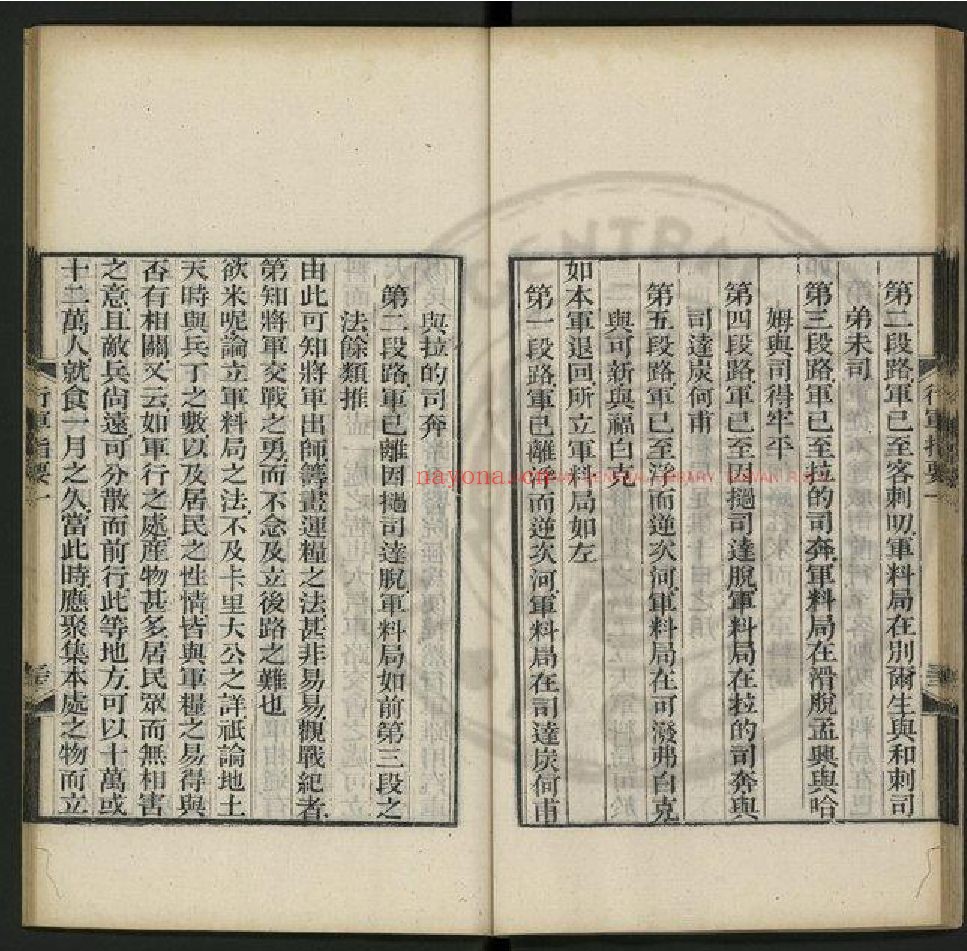 第二段路軍已至客刺叨軍料局在別爾生與和刺司
弟未司
第三段路軍已至拉的司奔軍料局在滑脫孟興與哈
姆與司得牢平
第四段路軍已至因撾司達脫軍料局在拉的司奔與
司達炭何甫
第五段路軍已至浮而逆次河軍料局在可潑弗白克
與可新與福白克
如本軍退回所立軍料局如左
第一段路軍已離浮而逆次河軍料局在司達炭何甫
與拉的司奔
第二段路軍已離因撾司達脫軍料局如前第三段之
法餘類推
由此可知將軍出師籌畫運糧之法甚非易易觀戰紀者
第知將軍交戰之勇而不念及立後路之難也
欲米呢論立軍料局之法不及卡里大公之詳祇論地土
天時與兵丁之數以及居民之性情皆與軍糧之易得與
否有相關又云如軍行之處產物甚多居民眾而無相害
之意且敵兵尚遠可分散而前行此等地方可以十萬或
十二萬人就食一月之久當此時應聚集本處之物而立
行軍指要一
行軍指要一
nayona.cn